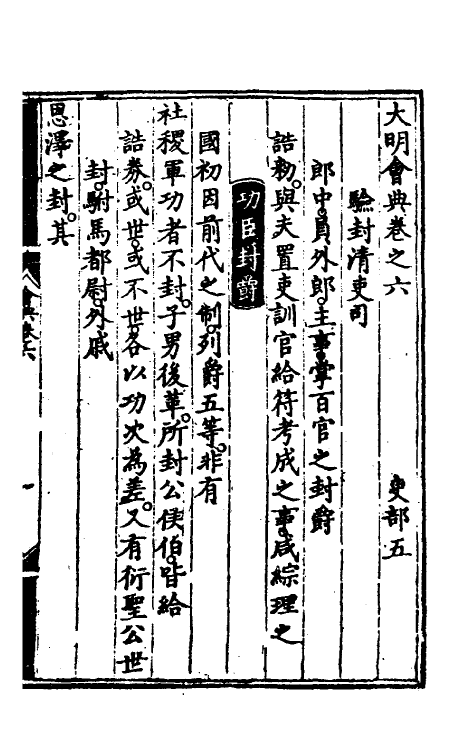 大明會典卷之六 吏部五
驗封清吏司
郎中員外郎主事掌百官之封爵
誥勑與夫置吏訓官給符考成之事咸綜理之
功臣封爵
國初因前代之制列爵五等非有
社稷軍功者不封子男後革所封公侯伯皆給
誥券或世或不世各以功次為差又有衍聖公世
封駙馬都尉外戚
恩澤之封其
會典卷六
一